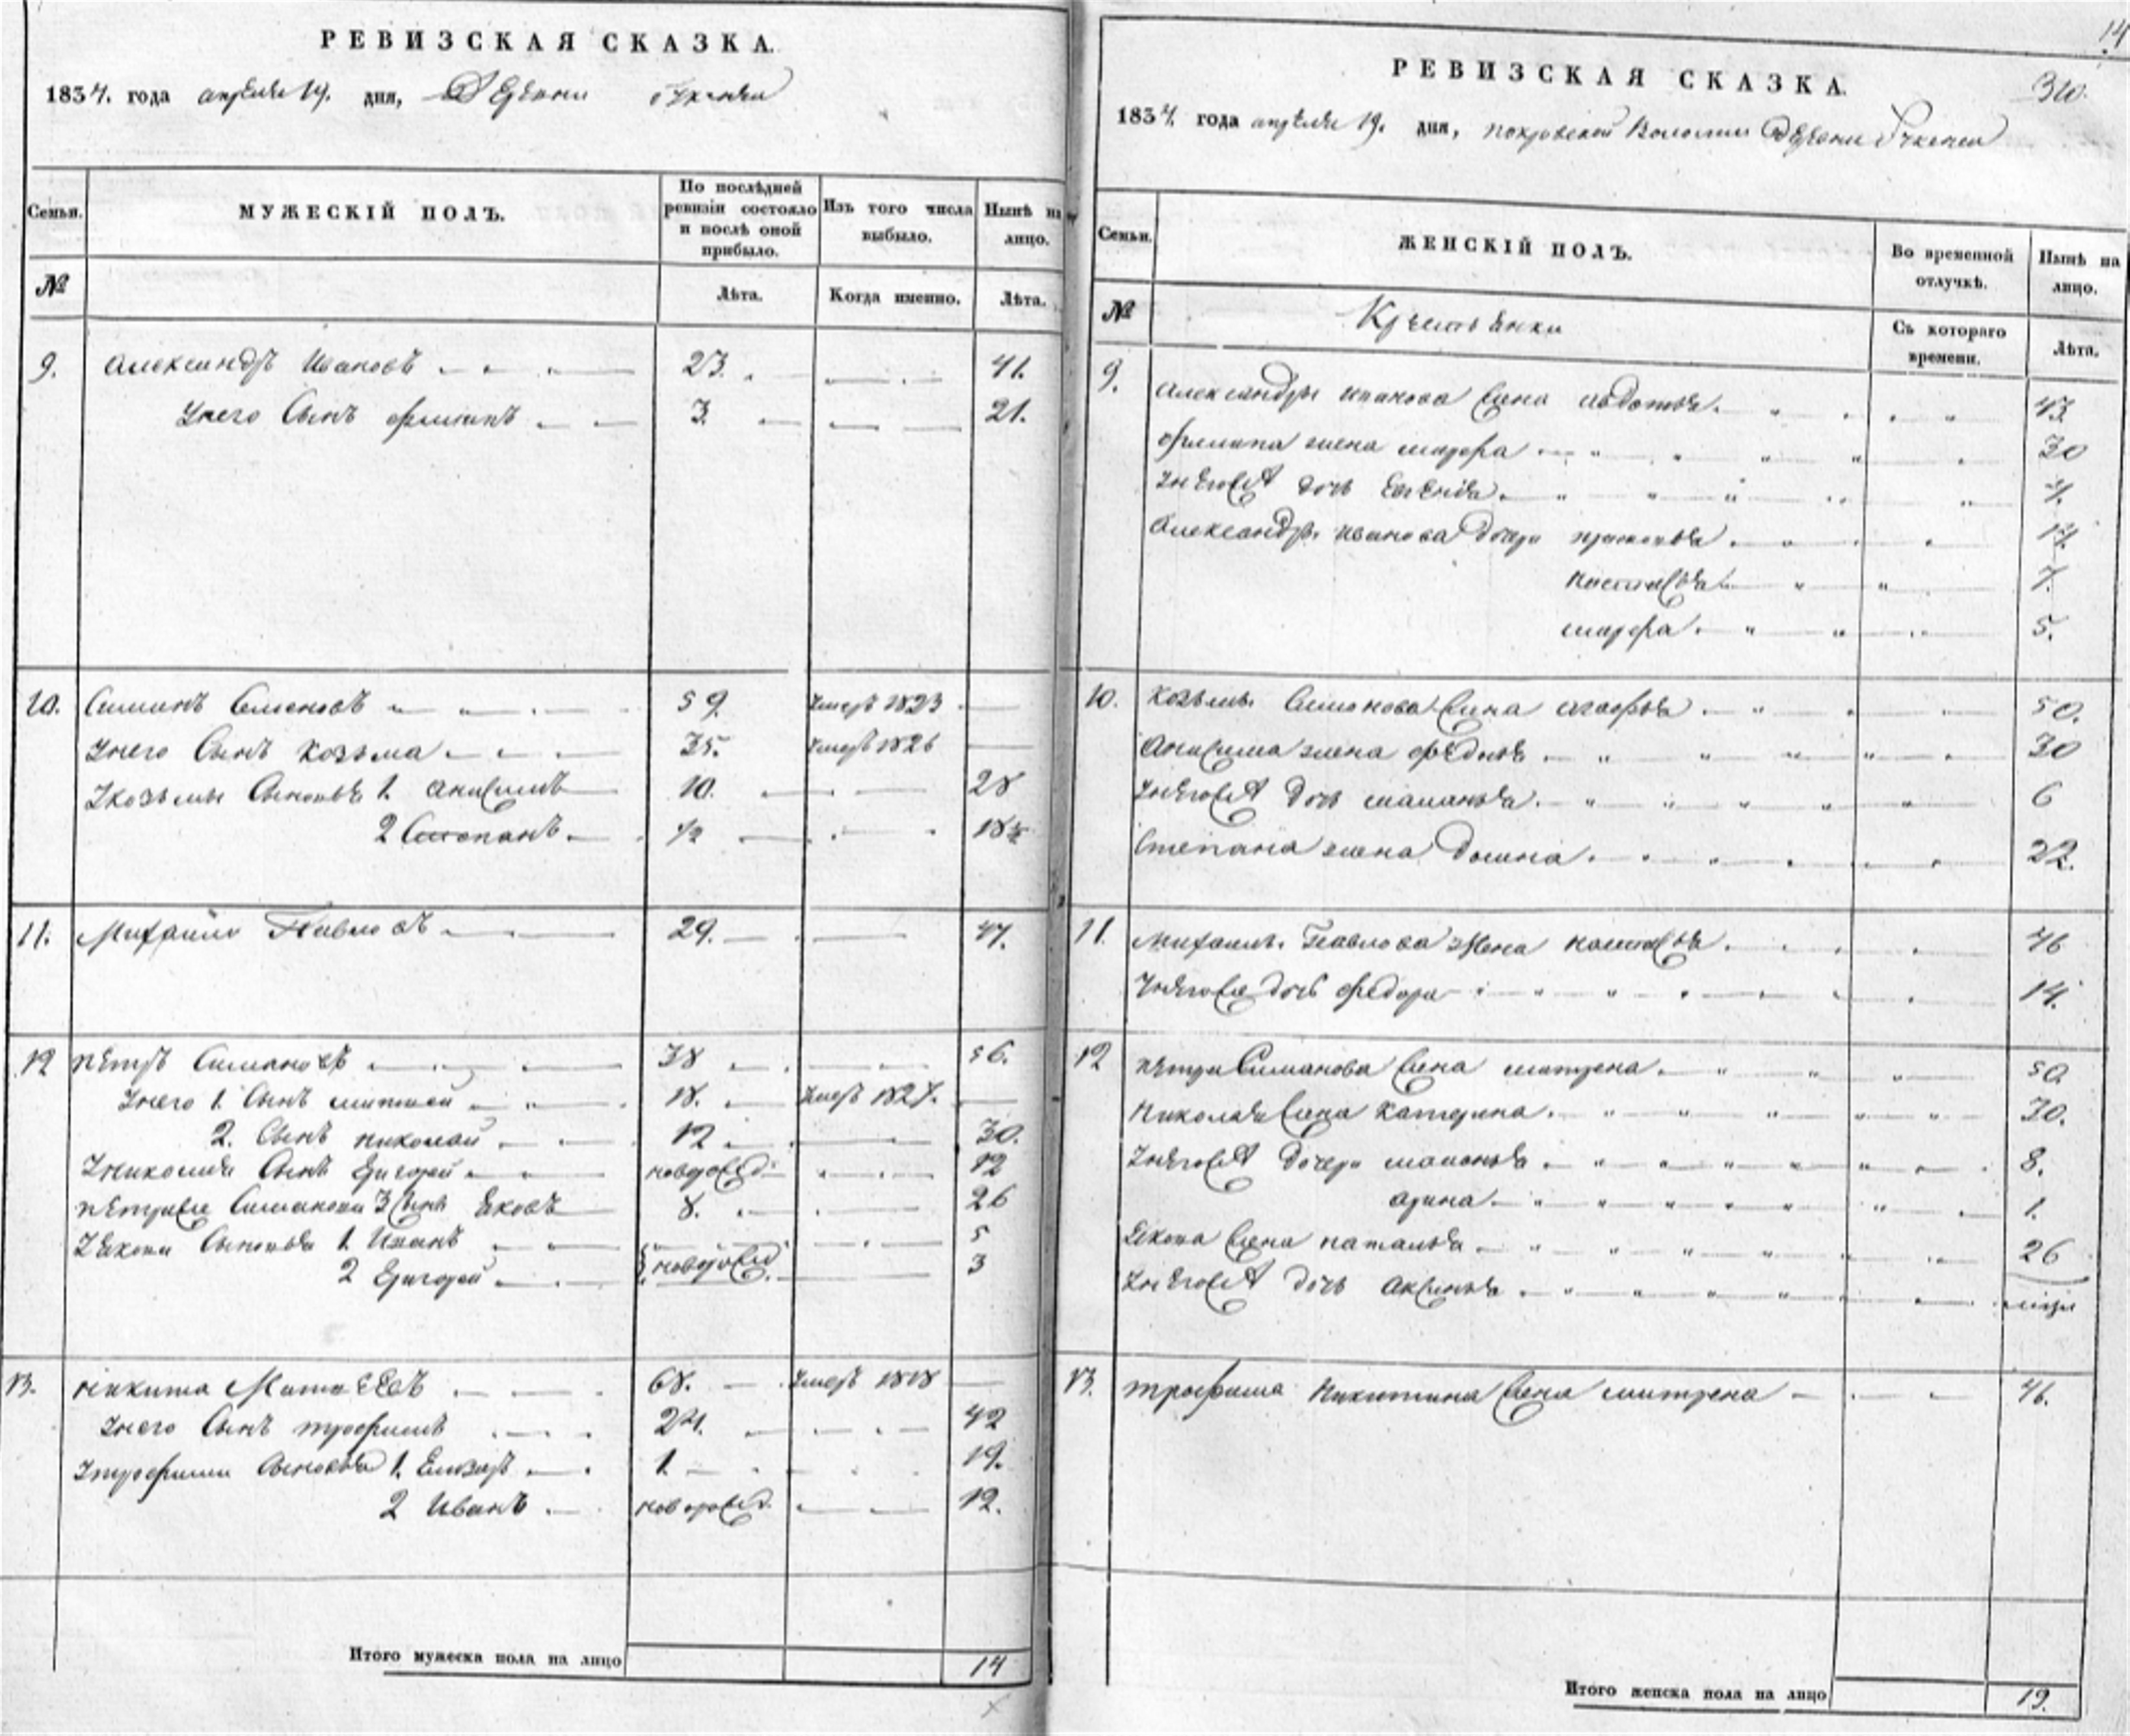 РЕВИЗСКАЯ СКАЗКА.
1834. года апреля 19. дня, Деревни
Семьи.
МУЖЕСКІЙ ПОЛЪ.
По послѣдней ревизіи состояло и послѣ оной прибыло.
Изъ того числа выбыло.
Нынѣ на лицо.
№
Лѣта.
Когда именно.
Лѣта.
9. Александръ Ивановъ 23. 41.
Унего Сынъ филипъ 3. 21.
10. Симонъ Семеновъ 59. Умеръ 1823
Унего Сынъ Козьма 35. Умеръ 1826
Укозьмы Сыновья 1. Анисимъ 10. 28
2 Степанъ 1/2 18 1/2
11. Михайло Павловъ 29. 47.
12 петръ Симановъ 38 56.
Унего 1. Сынъ матвей 18. Умеръ 1827.
2. Сынъ николай 12 30.
Униколая Сынъ Григорей новорожд. 12
петраже Симанова 3 Сынъ Яковъ 8. 26
Уякова Сыновья 1. Иванъ новорожд. 5
2 Григорей 3
13. никита Матвеевъ 68. Умеръ 1818
Унего Сынъ трофимъ 24. 42
Утрофима Сыновья 1. Елизаръ 1. 19.
2 Иванъ новорожд. 12.
Итого мужеска пола на лицо 14
14
310.
РЕВИЗСКАЯ СКАЗКА.
1834. года апреля 19. дня, покровской Волости Деревни
Семьи.
ЖЕНСКІЙ ПОЛЪ.
Во временной отлучкѣ.
Нынѣ на лицо.
№
Крестьянки
Съ котораго времени.
Лѣта.
9. Александра иванова жена авдотья. 43.
филипа жена марфа 30
Унегожъ дочь Евгения. 4.
Александра иванова дочери прасковья. 14.
настасья 7.
марфа. 5.
10. козьмы Симонова жена агафья 50.
Анисима жена фядосья 30
Унегожъ дочь маланья. 6
Степана жена Домна. 22.
11. михаила Павлова жена настасья 46
Унегоже дочь федора 14.
12 петра Симанова жена матрена. 50
николая жена катерина. 30.
Унегожъ дочери маланья 8.
арина 1.
Якова жена наталья 26
Унегожъ дочь Аксинья
13. трофима Никитина жена матрена 46.
Итого женска пола на лицо 19.